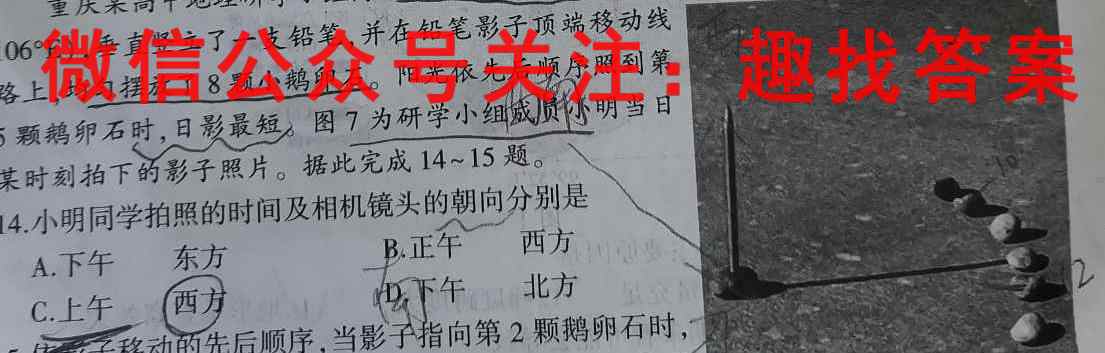 重庆某高中地理研学小组
106°
垂直竖立了一支铅笔,并在铅笔影子顶端移动线
微信公众号关注：趣找答案
路上,
摆放了8颗小鹅卵石。阳光依先后顺序照到第
5颗鹅卵石时,日影最短。图7为研学小组成员小明当日
某时刻拍下的影子照片。据此完成14~15题。
14.小明同学拍照的时间及相机镜头的朝向分别是
A.下午 东方
B.正午 西方
C.上午 西方
D.下午 北方
影子移动的先后顺序,当影子指向第2颗鹅卵石时,